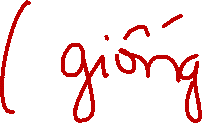 ( giống